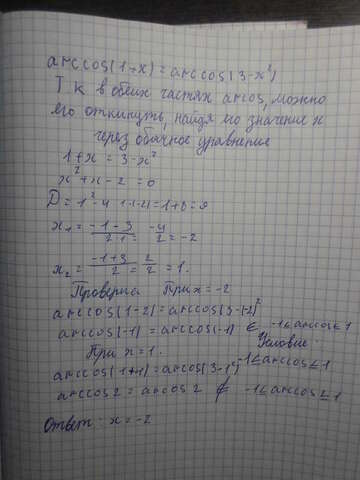 arccos(1+x) = arccos(3-x²)
Т к в обеих частях arcos, можно
его откинуть, найдя мо значение x
через обычное уравнение
1+x = 3-x²
x²+x-2=0
D = 1²-4·1·(-2)=1+8=9
x₁ = (-1-3)/(2·1) = -4/2 = -2
x₂ = (-1+3)/2 = 2/2 = 1.
Проверка При x=-2
arccos(1-2)=arccos(3-(-2)²
arccos(-1) = arccos(-1) ∈ -1≤arccos≤1
Условие:
При x=1.
arccos(1+1)=arccos(3-1²) -1≤arccos≤1
arccos2 = arccos2 ∉ -1≤arccos≤1
Ответ: x=-2